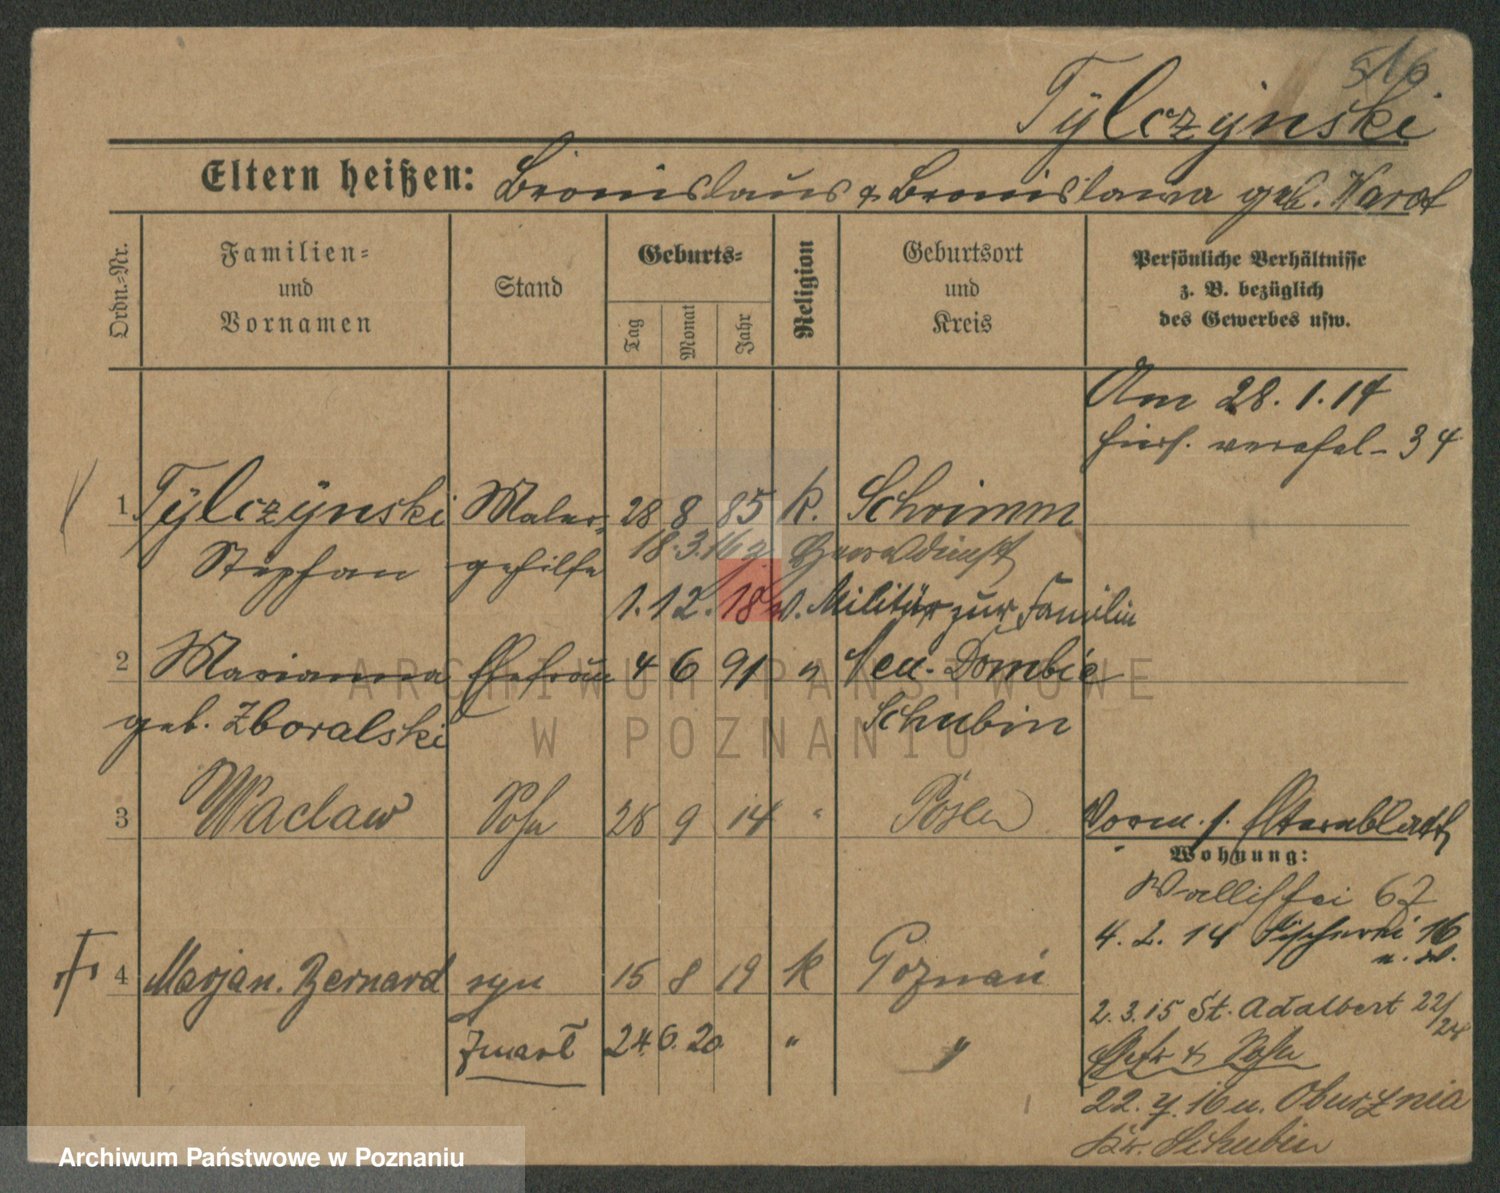 516
Tylczynski
Eltern heißen: Bronislaus & Bronislawa geb.
Ordn.-Nr.
Familien-
und
Vornamen
Stand
Geburts-
Tag
Monat
Jahr
Religion
Geburtsort
und
Kreis
Persönliche Verhältnisse
z. B. bezüglich
des Gewerbes usw.
Am 28. 1. 14
34
1 Tylczynski Maler- 28 8 85 k. Schrimm
Stephan gehilfe 18. 3. 16 z. Heeresdienst
1. 12. 18 v. Militär zur Familie
2 Marianna Ehefrau 4 6 91 " Neu-Dombie
geb. Zboralski Schubin
3 Waclaw Sohn 28 9 14 " Posen
Vorm. s. Elternblatt
Wohnung:
Wallischei 67
4. 2. 14 Fischerei 16
u. W.
4 Marjan. Bernard syn 15 8 19 k Poznań
2. 3. 15 St. Adalbert 22/
24
Zmarł 24. 6. 20. " "
Ehefr & Sohn
22. 7. 16 n. Oburznia
Kr. Schubin
ARCHIWUM PAŃSTWOWE
W POZNANIU
Archiwum Państwowe w Poznaniu